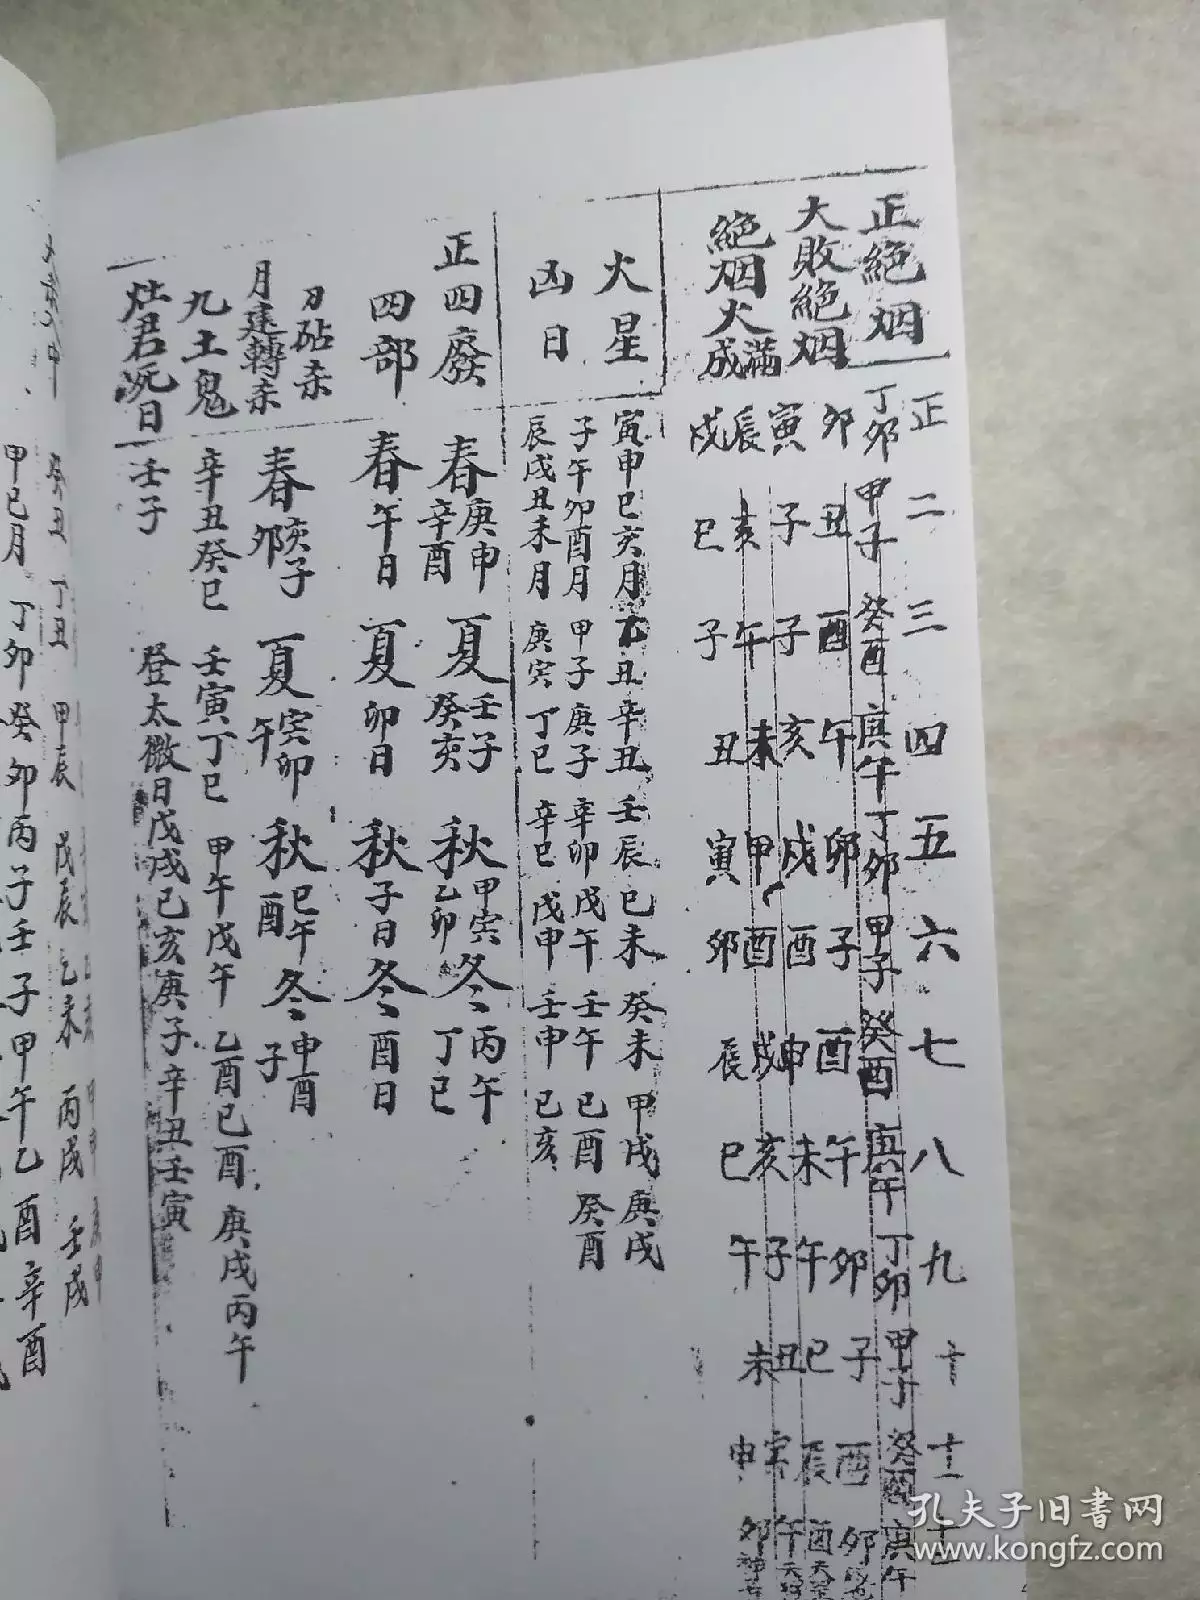 正二三四五六七八九十十一十二
正絕烟 丁卯 甲子 癸酉 庚午 丁卯 甲子 癸酉 庚午 丁卯 甲子 癸酉 庚午
大敗絕烟 卯丑酉午卯子酉午卯子酉卯
寅子子亥戌酉申未午巳辰酉
絕烟火 滿 辰亥午未甲酉戌亥子丑寅午
成 戌巳子丑寅卯辰巳午未申卯
火星 寅申巳亥月 乙丑 辛丑 壬辰 巳未 癸未 甲戌 庚戌
凶日 子午卯酉月 甲子 庚子 辛卯 戊午 壬午 巳酉 癸酉
辰戌丑未月 庚寅 丁巳 辛巳 戊申 壬申 巳亥
正四廢 春 庚申 辛酉 夏 壬子 癸亥 秋 甲寅 乙卯 冬 丙午 丁巳
四部 春午日 夏卯日 秋子日 冬酉日
刀砧杀 月建轉杀 春 亥子 卯 夏 寅卯 午 秋 巳午 酉 冬 申酉 子
九土鬼 辛丑 癸巳 壬寅 丁巳 甲午 戊午 乙酉 巳酉 庚戌 丙午
灶君死日 壬子 登太微日 戊戌 巳亥 庚子 辛丑 壬寅
癸丑 丁丑 甲辰 戊辰 乙未 丙戌 壬戌
甲巳月 丁卯 癸卯 丙子 壬子 甲午 乙酉 辛酉
孔夫子旧书网
www.kongfz.com